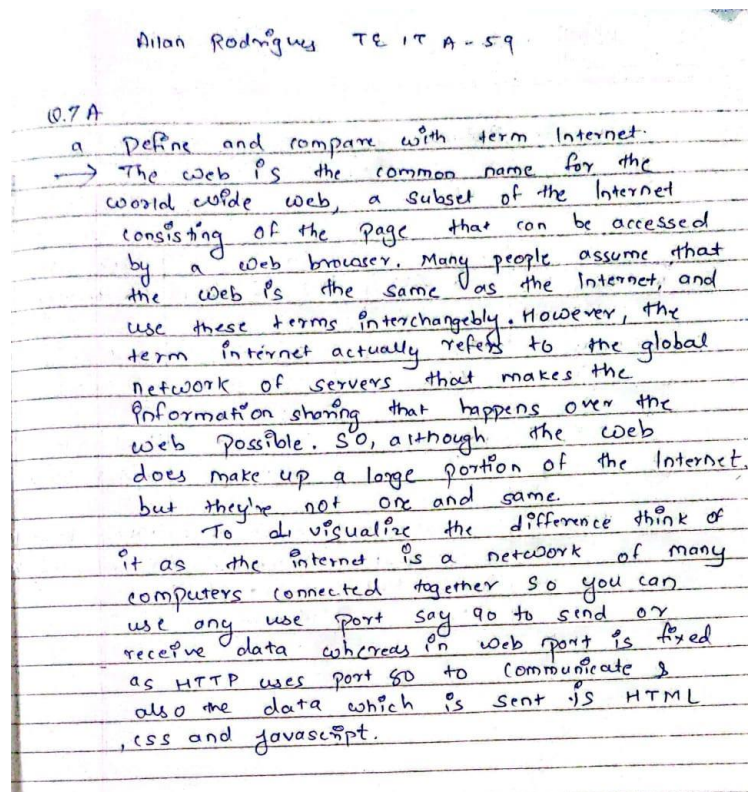 Allan Rodrigues TE IT A-59
Q.7 A
a Define and compare with term Internet.
→ The web is the common name for the
world wide web, a subset of the Internet
consisting of the page that can be accessed
by a web browser. Many people assume that
the web is the same as the internet, and
use these terms interchangebly. However, the
term internet actually refers to the global
network of servers that makes the
information sharing that happens over the
web possible. So, although the web
does make up a large portion of the Internet,
but they're not one and same.
To visualize the difference think of
it as the internet is a network of many
computers connected together so you can
use any use port say 90 to send or
receive data whereas in web port is fixed
as HTTP uses port 80 to communicate &
also the data which is sent is HTML
, css and javascript.